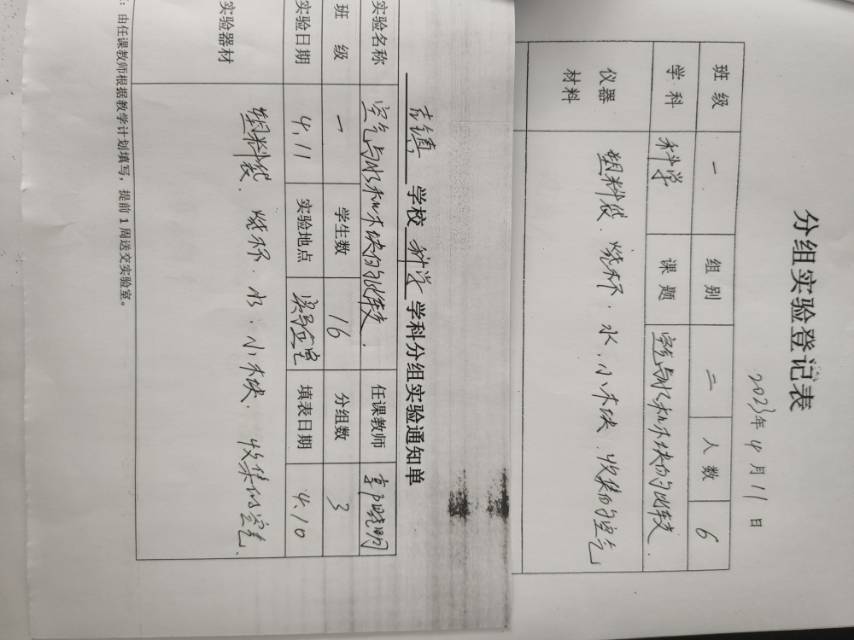 分组实验登记表
2023年 4 月 11 日
班 级 一 组 别 二 人 数 6
学 科 科学 课 题 空气与水和木块的的比较.
仪器
材料
塑料袋. 烧杯. 水. 小木块. 收集的的空气
学校 科学 学科分组实验通知单
实验名称 空气与水和木块的的比较. 任课教师
班 级 一 学生数 16 分组数 3
实验日期 4.11 实验地点 实验室 填表日期 4.10
实验器材
塑料袋. 烧杯. 水. 小木块. 收集的空气.
: 由任课教师根据教学计划填写, 提前 1 周送交实验室。